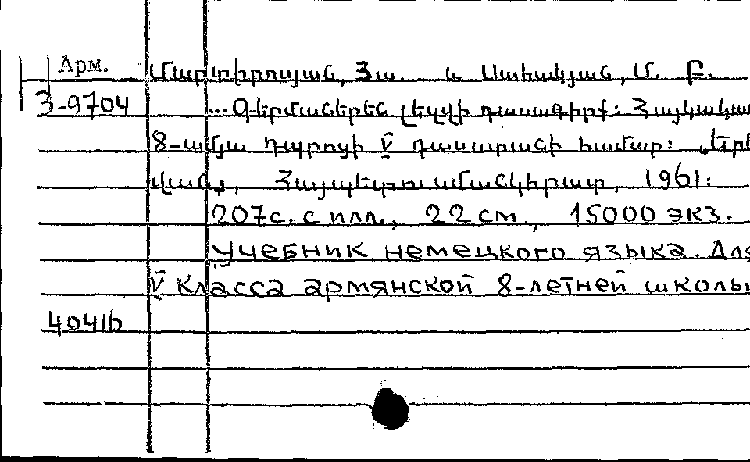 Арм.
Մարտիրոսյան, Հա. և Սահակյան, Մ. Բ.
3-9704
...Գերմաներեն լեզվի դասագիրք: Հայկական
8-ամյա դպրոցի V դասարանի համար: Երե
վան, Հայպետուսմանկհրատ, 1961:
207с. с илл., 22 см., 15000 экз.
Учебник немецкого языка. Для
V класса армянской 8-летней школы
40416